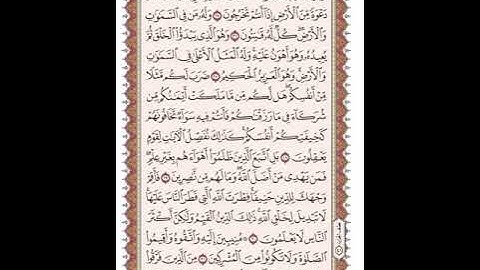 دَعْوَةً مِّنَ ٱلْأَرْضِ إِذَآ أَنتُمْ تَخْرُجُونَ ٢٥ وَلَهُۥ مَن فِى ٱلسَّمَٰوَٰتِ
وَٱلْأَرْضِ ۖ كُلٌّ لَّهُۥ قَٰنِتُونَ ٢٦ وَهُوَ ٱلَّذِى يَبْدَؤُا۟ ٱلْخَلْقَ ثُمَّ
يُعِيدُهُۥ وَهُوَ أَهْوَنُ عَلَيْهِ ۚ وَلَهُ ٱلْمَثَلُ ٱلْأَعْلَىٰ فِى ٱلسَّمَٰوَٰتِ
وَٱلْأَرْضِ ۚ وَهُوَ ٱلْعَزِيزُ ٱلْحَكِيمُ ٢٧ ضَرَبَ لَكُم مَّثَلًا
مِّنْ أَنفُسِكُمْ ۖ هَل لَّكُم مِّن مَّا مَلَكَتْ أَيْمَٰنُكُم مِّن
شُرَكَآءَ فِى مَا رَزَقْنَٰكُمْ فَأَنتُمْ فِيهِ سَوَآءٌ تَخَافُونَهُمْ
كَخِيفَتِكُمْ أَنفُسَكُمْ ۚ كَذَٰلِكَ نُفَصِّلُ ٱلْـَٔايَٰتِ لِقَوْمٍ
يَعْقِلُونَ ٢٨ بَلِ ٱتَّبَعَ ٱلَّذِينَ ظَلَمُوٓا۟ أَهْوَآءَهُم بِغَيْرِ عِلْمٍ ۖ
فَمَن يَهْدِى مَنْ أَضَلَّ ٱللَّهُ ۖ وَمَا لَهُم مِّن نَّٰصِرِينَ ٢٩ فَأَقِمْ
وَجْهَكَ لِلدِّينِ حَنِيفًا ۚ فِطْرَتَ ٱللَّهِ ٱلَّتِى فَطَرَ ٱلنَّاسَ عَلَيْهَا ۚ
لَا تَبْدِيلَ لِخَلْقِ ٱللَّهِ ۚ ذَٰلِكَ ٱلدِّينُ ٱلْقَيِّمُ وَلَٰكِنَّ أَكْثَرَ
ٱلنَّاسِ لَا يَعْلَمُونَ ٣٠ مُنِيبِينَ إِلَيْهِ وَٱتَّقُوهُ وَأَقِيمُوا۟
ٱلصَّلَوٰةَ وَلَا تَكُونُوا۟ مِنَ ٱلْمُشْرِكِينَ ٣١ مِنَ ٱلَّذِينَ فَرَّقُوا۟